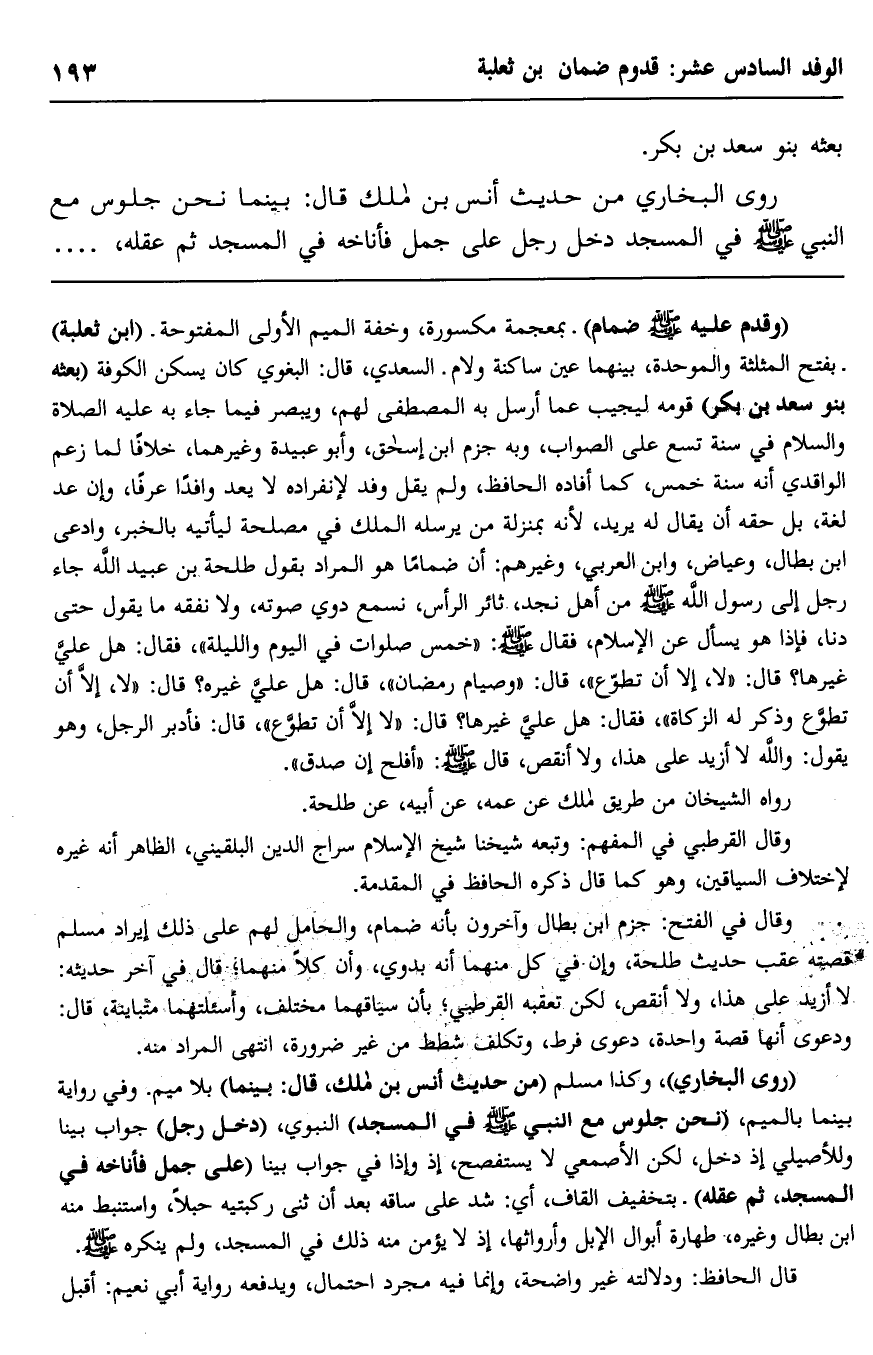 الوفد السادس عشر: قدوم ضمان بن ثعلبة ١٩٣
بعثه بنو سعد بن بكر.
روى البخاري من حديث أنس بن مٰلك قال: بينما نحن جلوس مع
النبي ﷺ في المسجد دخل رجل على جمل فأناخه في المسجد ثم عقله، ....
(وقدم عليه ﷺ ضمام). بمعجمة مكسورة، وخفة الميم الأولى المفتوحة. (ابن ثعلبة)
. بفتح المثلثة والموحدة، بينهما عين ساكنة ولام. السعدي، قال: البغوي كان يسكن الكوفة (بعثه
بنو سعد بن بكر) قومه ليجيب عما أرسل به المصطفى لهم، ويبصر فيما جاء به عليه الصلاة
والسلام في سنة تسع على الصواب، وبه جزم ابن إسحٰق، وأبو عبيدة وغيرهما، خلافًا لما زعم
الواقدي أنه سنة خمس، كما أفاده الحافظ، ولم يقل وفد لإنفراده لا يعد وافدًا عرفًا، وإن عد
لغة، بل حقه أن يقال له يريد، لأنه بمنزلة من يرسله الملك في مصلحة ليأتيه بالخبر، وادعى
ابن بطال، وعياض، وابن العربي، وغيرهم: أن ضمامًا هو المراد بقول طلحة بن عبيد اللَّه جاء
رجل إلى رسول اللَّه ﷺ من أهل نجد، ثائر الرأس، نسمع دوي صوته، ولا نفقه ما يقول حتى
دنا، فإذا هو يسأل عن الإسلام، فقال ﷺ: «خمس صلوات في اليوم والليلة»، فقال: هل عليَّ
غيرها؟ قال: «لا، إلا أن تطوّع»، قال: «وصيام رمضان»، قال: هل عليَّ غيره؟ قال: «لا، إلاَّ أن
تطوَّع وذكر له الزكاة»، فقال: هل عليَّ غيرها؟ قال: «لا إلاَّ أن تطوَّع»، قال: فأدبر الرجل، وهو
يقول: واللَّه لا أزيد على هذا، ولا أنقص، قال ﷺ: «أفلح إن صدق».
رواه الشيخان من طريق مٰلك عن عمه، عن أبيه، عن طلحة.
وقال القرطبي في المفهم: وتبعه شيخنا شيخ الإسلام سراج الدين البلقيني، الظاهر أنه غيره
لإختلاف السياقين، وهو كما قال ذكره الحافظ في المقدمة.
وقال في الفتح: جزم ابن بطال وآخرون بأنه ضمام، والحامل لهم على ذلك إيراد مسلم
قصته عقب حديث طلحة، وإن في كل منهما أنه بدوي، وأن كلاً منهما؛ قال في آخر حديثه:
لا أزيد على هذا، ولا أنقص، لكن تعقبه القرطبي؛ بأن سياقهما مختلف، وأسئلتهما متباينة، قال:
ودعوى أنها قصة واحدة، دعوى فرط، وتكلف شطط من غير ضرورة، انتهى المراد منه.
(روى البخاري)، وكذا مسلم (من حديث أنس بن مٰلك، قال: بينما) بلا ميم. وفي رواية
بينما بالميم، (نحن جلوس مع النبي ﷺ في المسجد) النبوي، (دخل رجل) جواب بينا
وللأصيلي إذ دخل، لكن الأصمعي لا يستفصح، إذ وإذا في جواب بينا (على جمل فأناخه في
المسجد، ثم عقله). بتخفيف القاف، أي: شد على ساقه بعد أن ثنى ركبتيه حبلاً، واستنبط منه
ابن بطال وغيره، طهارة أبوال الإبل وأرواثها، إذ لا يؤمن منه ذلك في المسجد، ولم ينكره ﷺ.
قال الحافظ: ودلالته غير واضحة، وإنما فيه مجرد احتمال، ويدفعه رواية أبي نعيم: أقبل